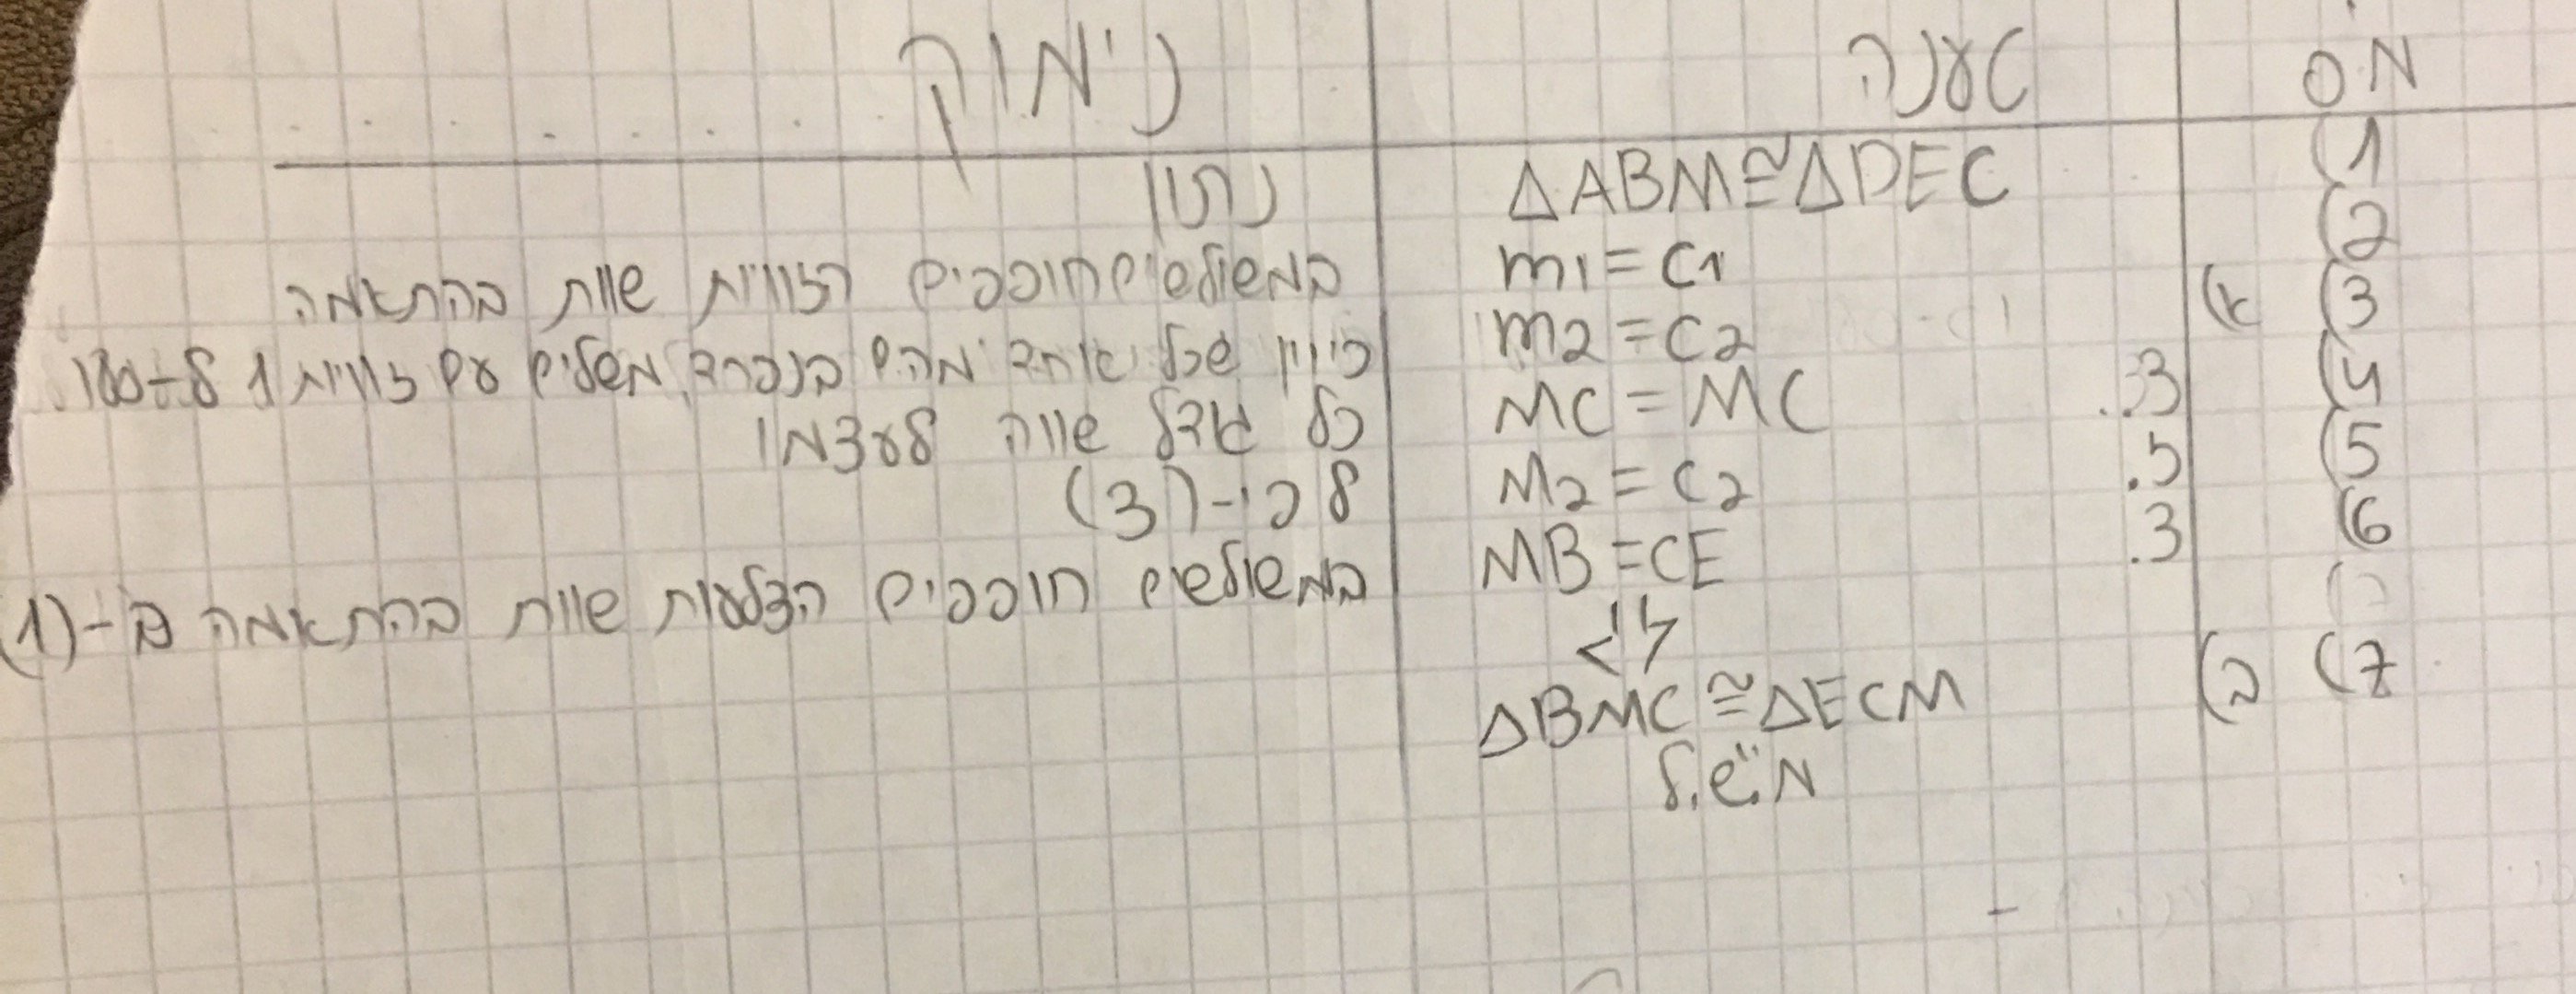 מס טענה נימוק
(1 ΔABM≅ΔDEC נתון
(2 m1=C1 במשולשים חופפים הזוויות שוות בהתאמה
(3 (א m2=C2 כיוון שכל אחד מהם בנפרד משלים עם זווית 1 ל-180
(4 .צ MC=MC כל גודל שווה לעצמו
(5 .ז M2=C2 לפי-(3)
(6 .צ MB=CE במשולשים חופפים הצלעות שוות בהתאמה ב-(1)
(7 (ב ΔBMC≅ΔECM
מ.ש.ל